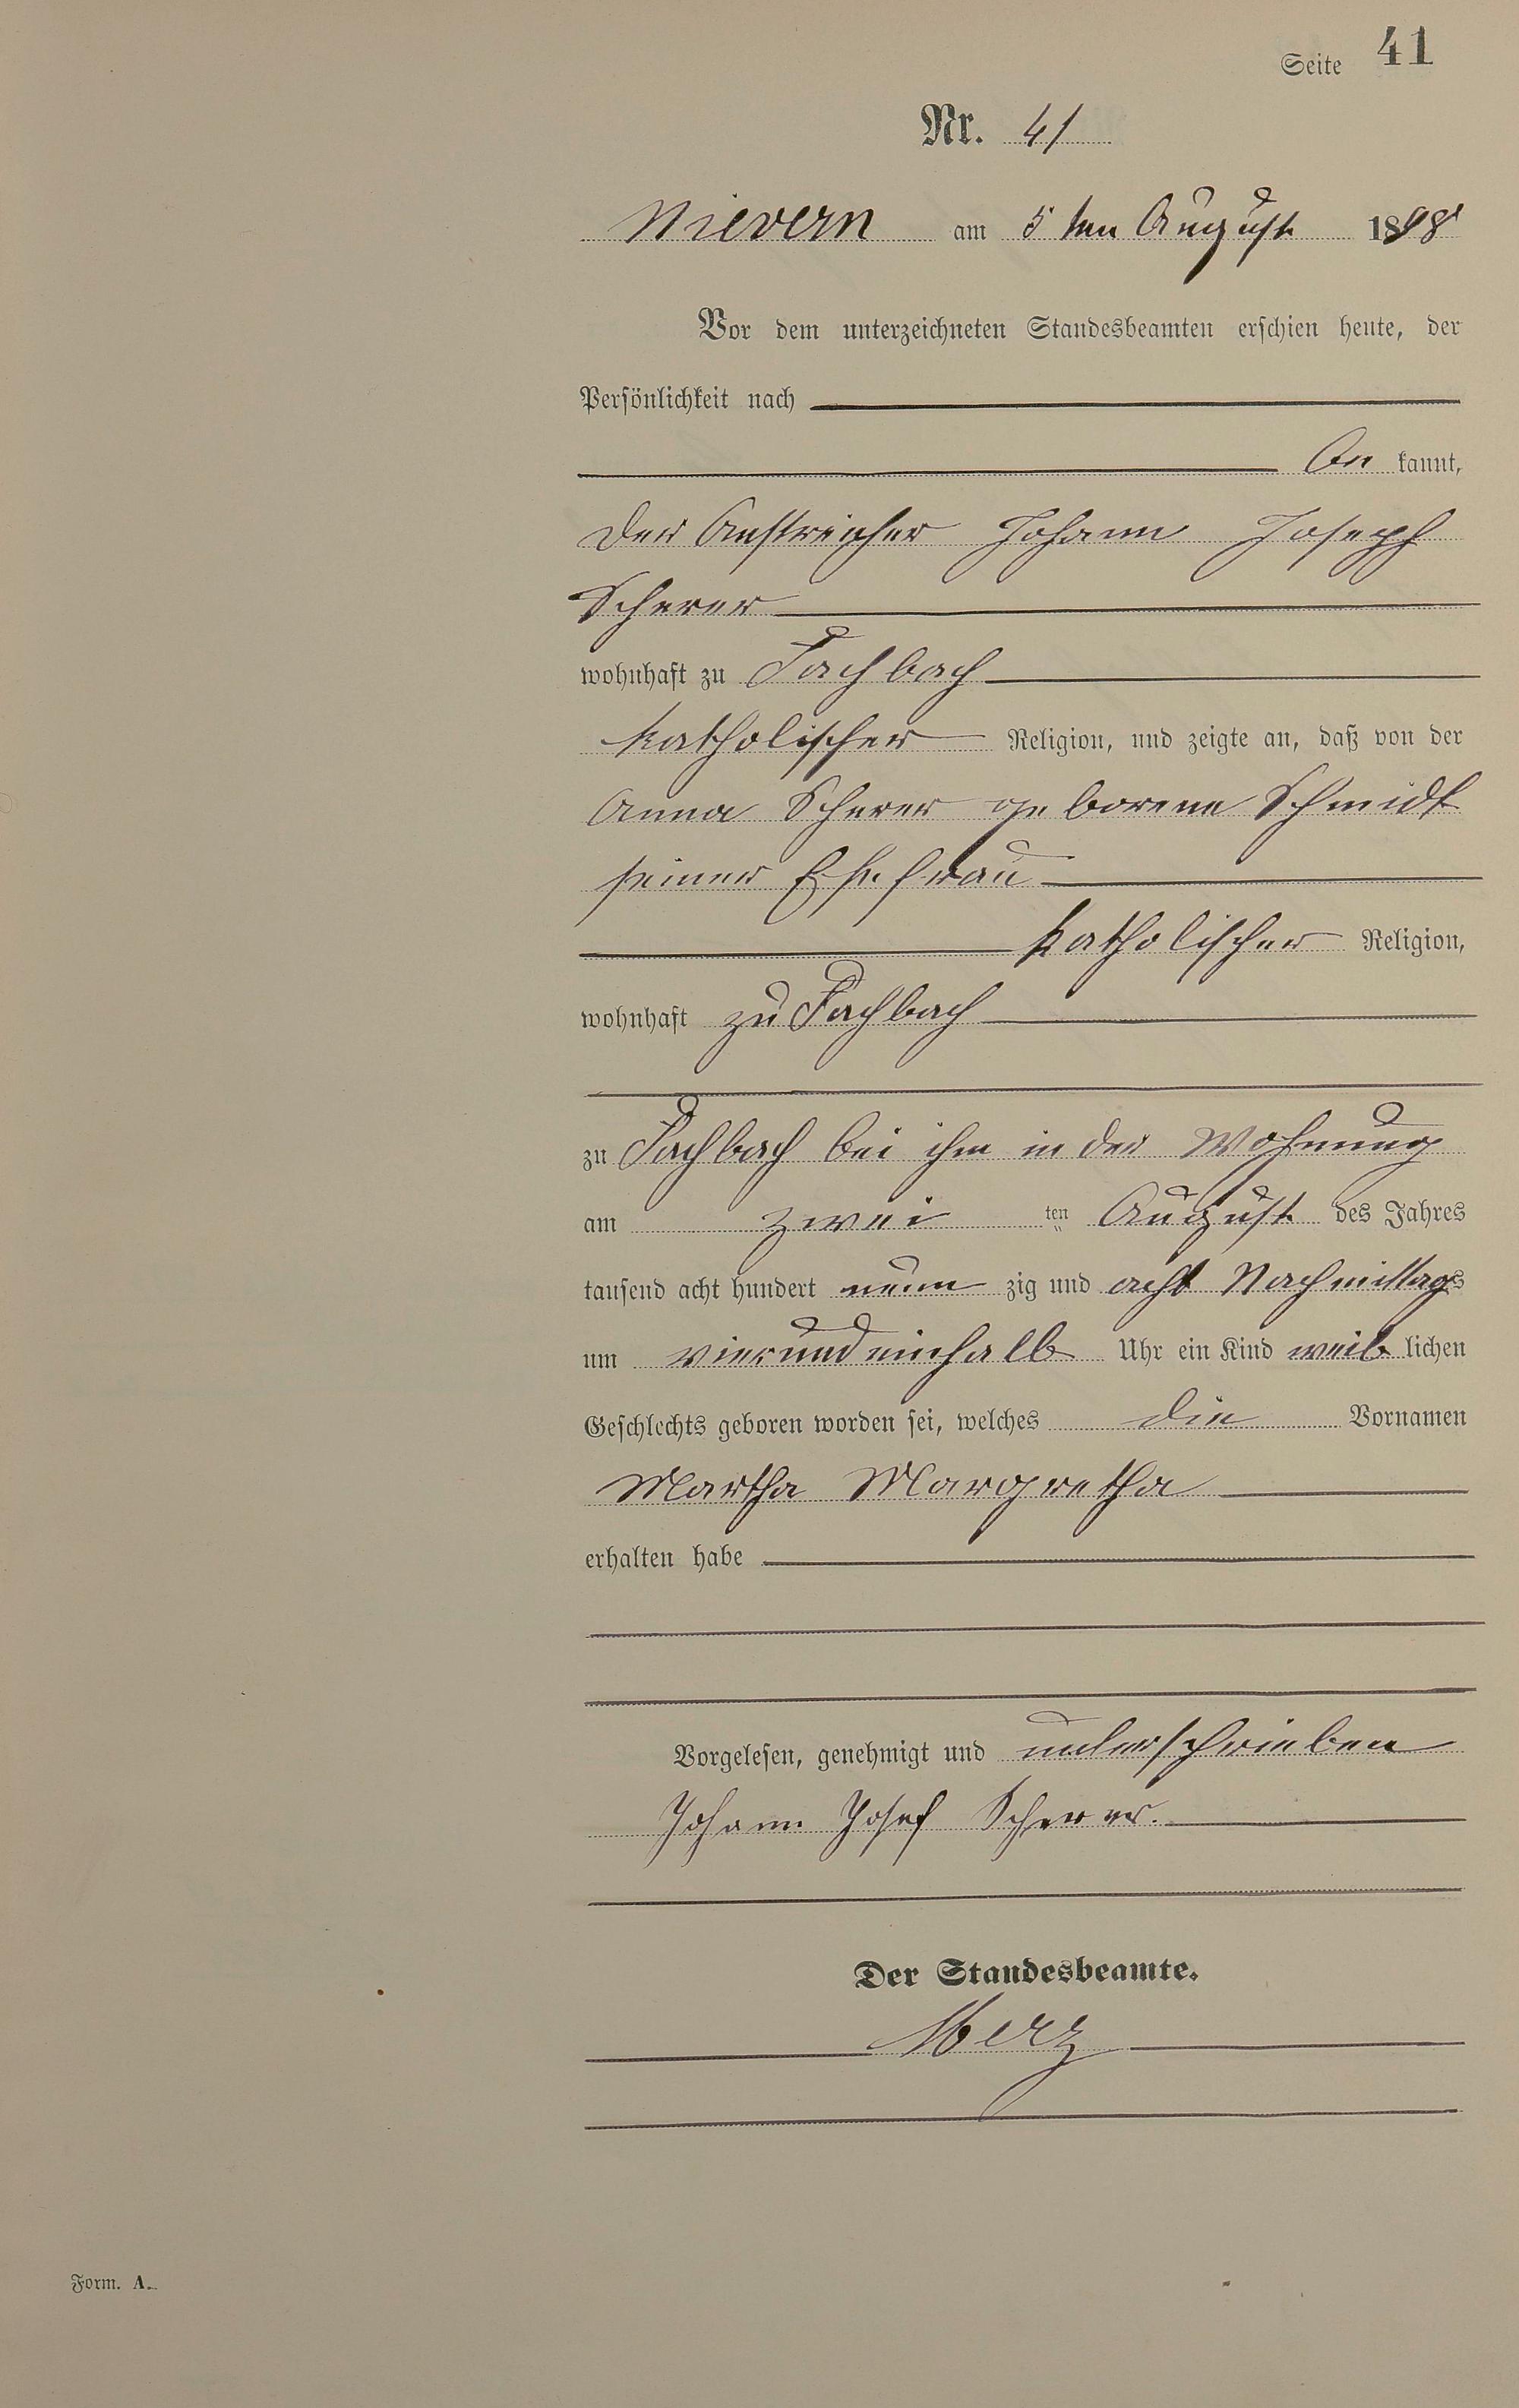 Seite 41
Nr. 41
Nievern am 5ten August 1898
Vor dem unterzeichneten Standesbeamten erschien heute, der
Persönlichkeit nach
kannt,
der Anstreicher Johann Joseph
Scherer
wohnhaft zu Fachbach
katholischer Religion, und zeigte an, daß von der
Anna Scherer geborene Schmidt
seiner Ehefrau
katholischer Religion,
wohnhaft zu Fachbach
zu Fachbach bei ihm in der Wohnung
am zwei ten August des Jahres
tausend acht hundert neun zig und acht Nachmittags
um vierundeinhalb Uhr ein Kind weib lichen
Geschlechts geboren worden sei, welches die Vornamen
Martha Margretha
erhalten habe
Vorgelesen, genehmigt und unterschrieben
Johann Josef Scherer.
Der Standesbeamte.
Merz
Form. A.